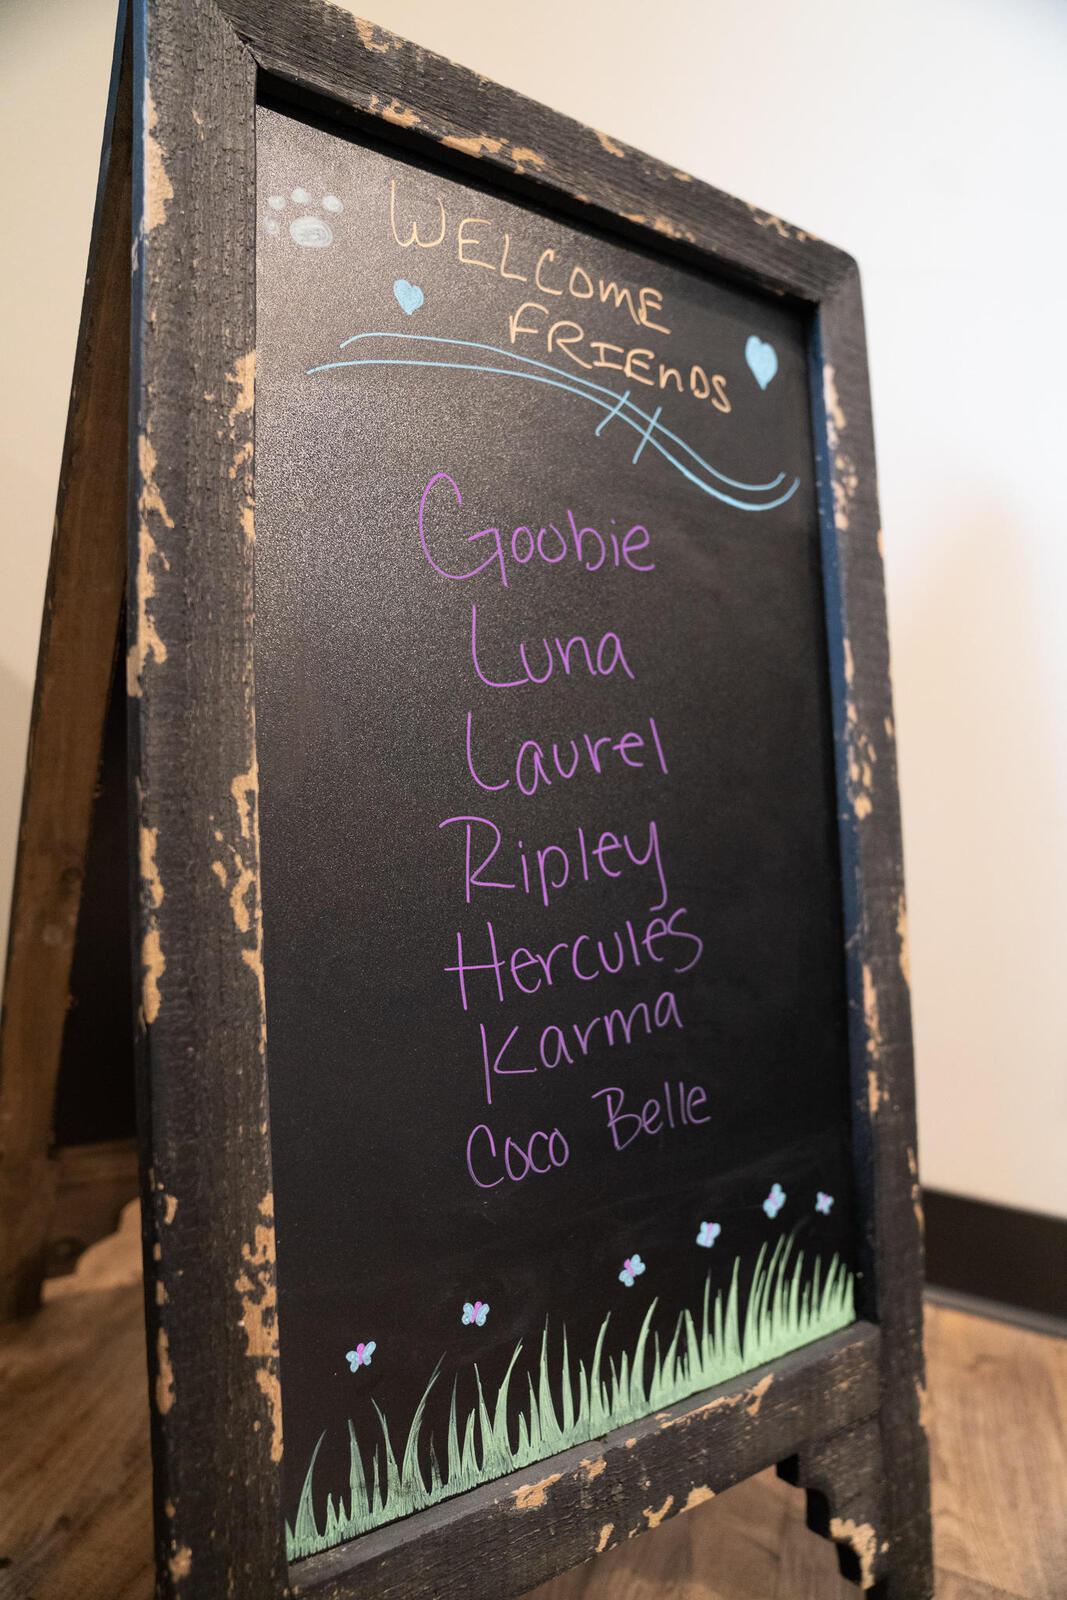 WELCOME
FRIENDS
Goobie
Luna
Laurel
Ripley
Hercules
Karma
Coco Belle